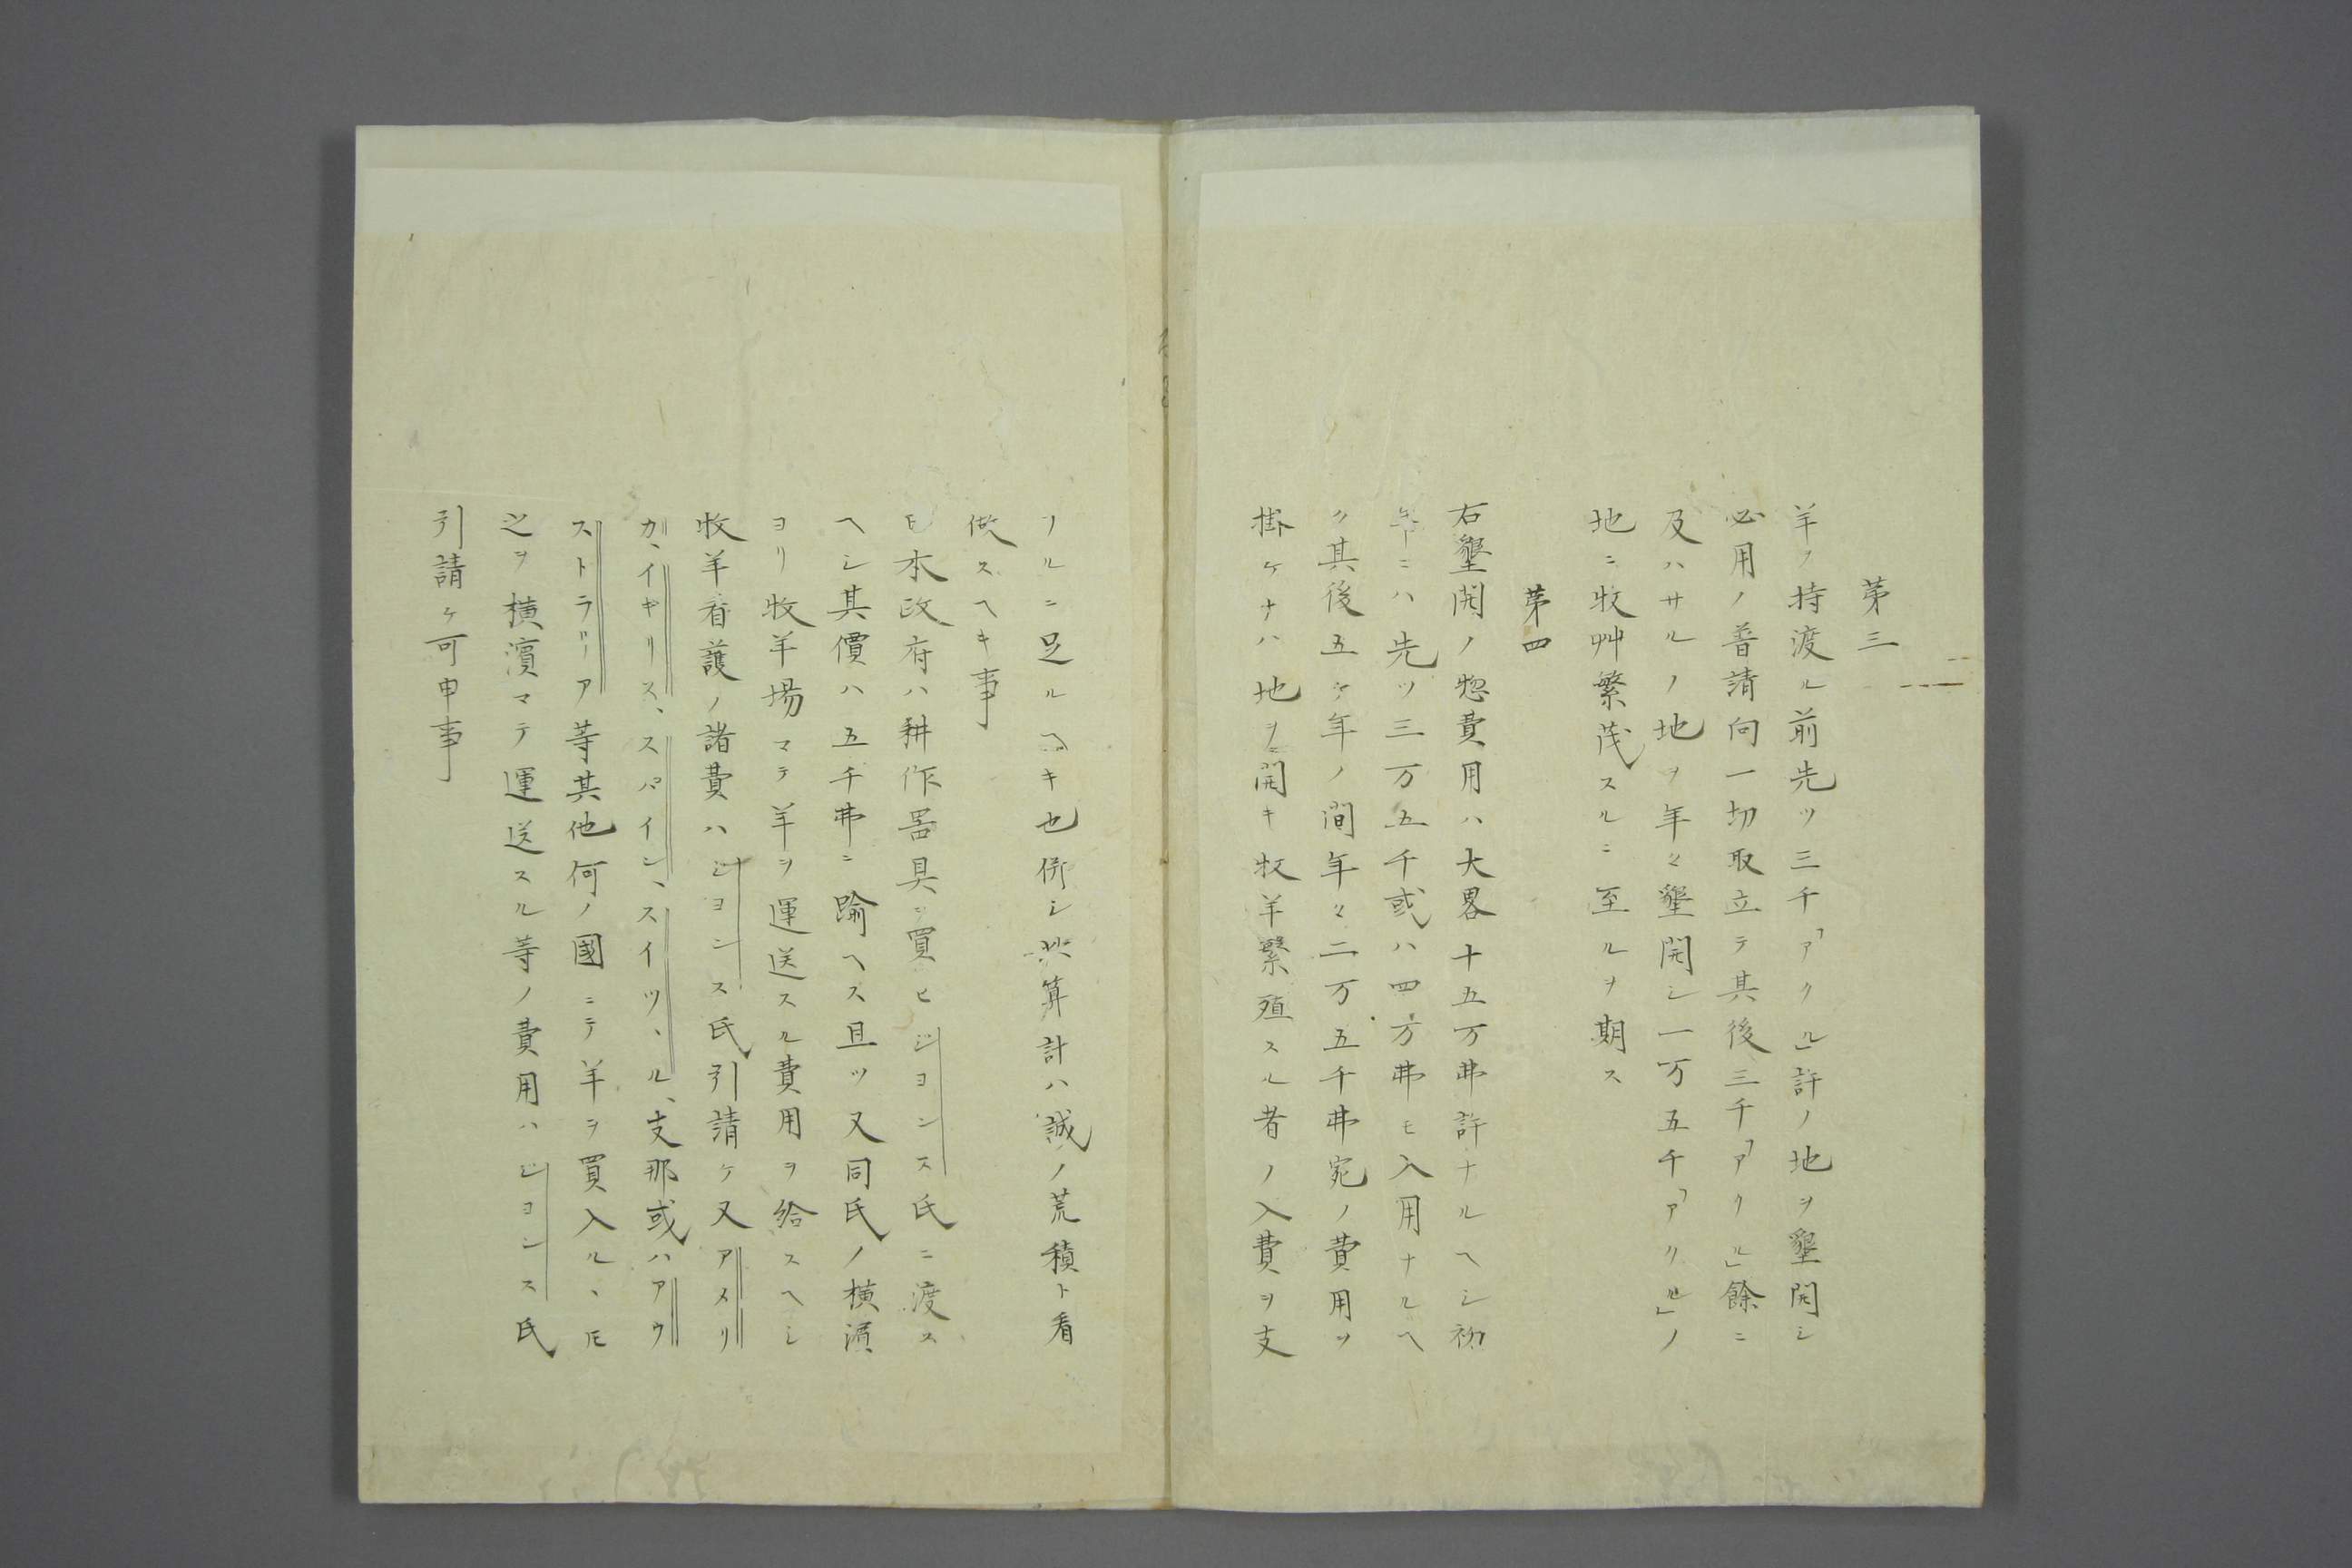 第三
羊ノ持渡ル前先ツ三千「アクル」許ノ地ヲ墾開シ
必用ノ普請向一切取立テ其後三千「アクル」餘ニ
及ハサルノ地ヲ年々墾開シ一万五千「アクル」ノ
地ニ牧艸繁茂スルニ至ルヲ期ス
第四
右墾開ノ惣費用ハ大畧十五万弗許ナルヘシ初
年ニハ先ツ三万五千或ハ四万弗モ入用ナルヘ
ク其後五ケ年ノ間年々二万五千弗宛ノ費用ヲ
掛ケナハ地ヲ開キ牧羊繁殖スル者ノ入費ヲ支
フルニ足ルヘキ也併シ此算計ハ誠ノ荒積ト看
做スヘキ事
日本政府ハ耕作器具ヲ買ヒジヨンス氏ニ渡ス
ヘシ其價ハ五千弗ニ踰ヘス且ツ又同氏ノ横濱
ヨリ牧羊場マテ羊ヲ運送スル費用ヲ給スヘシ
牧羊看護ノ諸費ハジヨンス氏引請ケ又アメリ
カ、イギリス、スパイン、スイツ、ル、支那或ハアウ
ストラリーア等其他何ノ國ニテ羊ヲ買入ル、𪜈
之ヲ横濱マテ運送スル等ノ費用ハジヨンス氏
引請ケ可申事